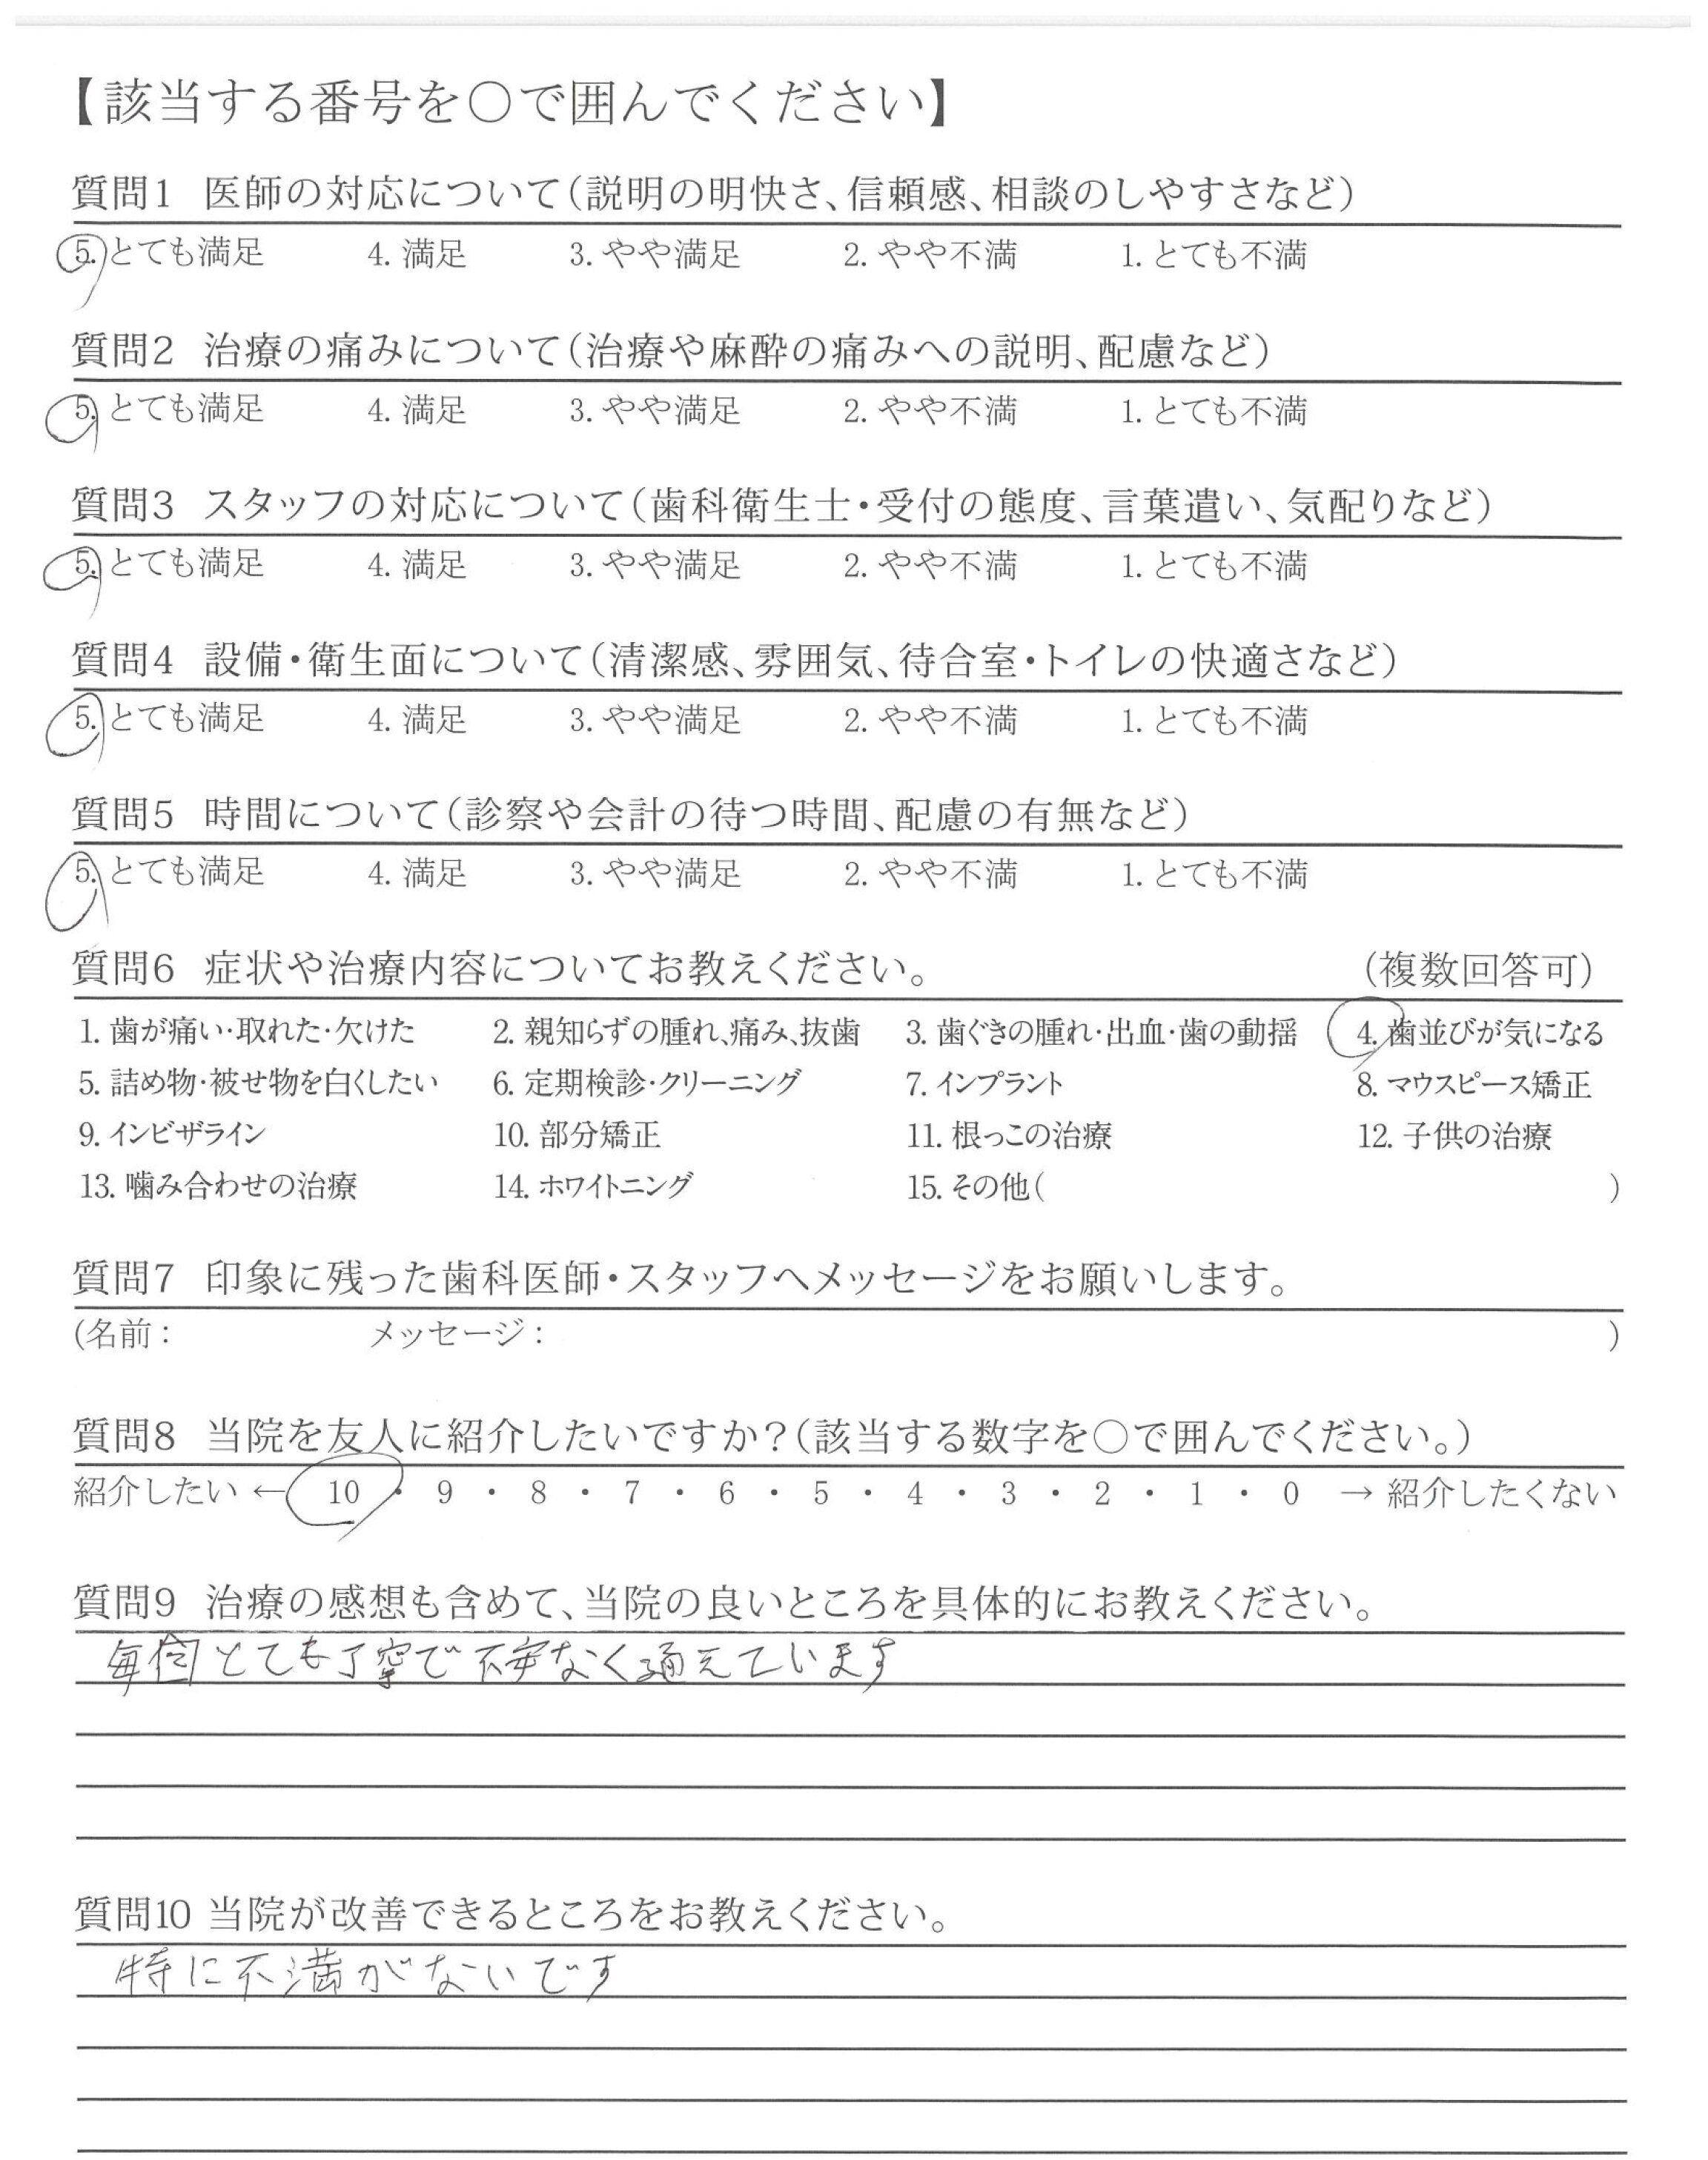 【該当する番号を○で囲んでください】
質問1 医師の対応について(説明の明快さ、信頼感、相談のしやすさなど)
5. とても満足 4. 満足 3. やや満足 2. やや不満 1. とても不満
質問2 治療の痛みについて(治療や麻酔の痛みへの説明、配慮など)
5. とても満足 4. 満足 3. やや満足 2. やや不満 1. とても不満
質問3 スタッフの対応について(歯科衛生士・受付の態度、言葉遣い、気配りなど)
5. とても満足 4. 満足 3. やや満足 2. やや不満 1. とても不満
質問4 設備・衛生面について(清潔感、雰囲気、待合室・トイレの快適さなど)
5. とても満足 4. 満足 3. やや満足 2. やや不満 1. とても不満
質問5 時間について(診察や会計の待つ時間、配慮の有無など)
5. とても満足 4. 満足 3. やや満足 2. やや不満 1. とても不満
質問6 症状や治療内容についてお教えください。 (複数回答可)
1. 歯が痛い・取れた・欠けた 2. 親知らずの腫れ、痛み、抜歯 3. 歯ぐきの腫れ・出血・歯の動揺 4. 歯並びが気になる
5. 詰め物・被せ物を白くしたい 6. 定期検診・クリーニング 7. インプラント 8. マウスピース矯正
9. インビザライン 10. 部分矯正 11. 根っこの治療 12. 子供の治療
13. 噛み合わせの治療 14. ホワイトニング 15. その他( )
質問7 印象に残った歯科医師・スタッフへメッセージをお願いします。
(名前： メッセージ： )
質問8 当院を友人に紹介したいですか？(該当する数字を○で囲んでください。)
紹介したい ← 10 ・ 9 ・ 8 ・ 7 ・ 6 ・ 5 ・ 4 ・ 3 ・ 2 ・ 1 ・ 0 → 紹介したくない
質問9 治療の感想も含めて、当院の良いところを具体的にお教えください。
毎回とても丁寧で不安なく通えています
質問10 当院が改善できるところをお教えください。
特に不満がないです